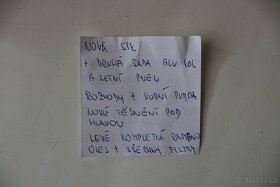 NOVÁ STK
+ DRUHÁ SADA ALU KOL
A LETNÍ PNEU
ROZVODY + VODNÍ PUMPA
NOVÉ TĚSNĚNÍ POD
HLAVOU
LEVÉ KOMPLETNÍ RAMENO
OLEJ + VŠECHNY FILTRY